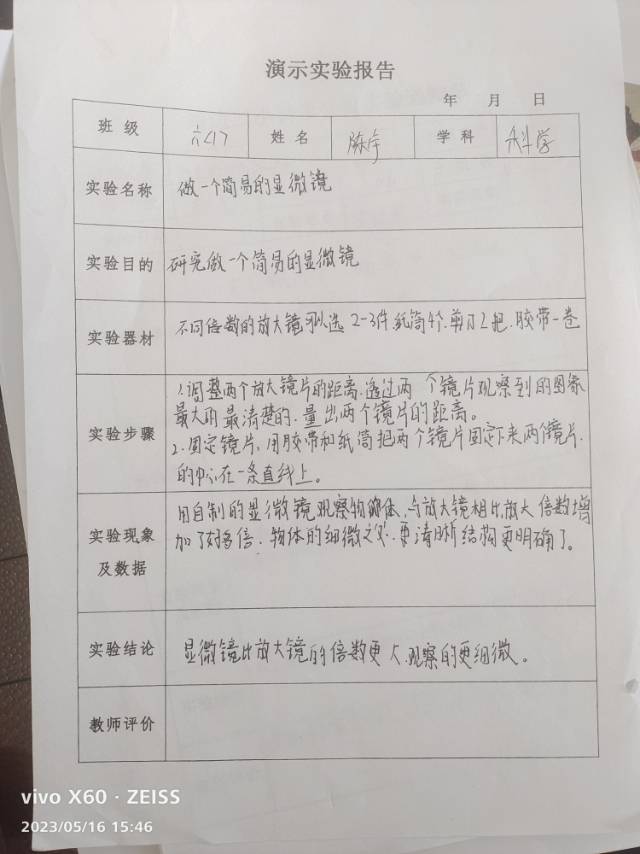 演示实验报告
年 月 日
班级 六(1) 姓名 陈宇 学科 科学
实验名称 做一个简易的显微镜
实验目的 研究做一个简易的显微镜
实验器材 不同倍数的放大镜 2-3件.纸筒4个.剪刀2把.胶带一卷
实验步骤
1.调整两个放大镜片的距离.透过两个镜片观察到的图象
最大用最清楚的.量出两个镜片的距离。
2.固定镜片.用胶带和纸筒把两个镜片固定下来两个镜片.
的中心在一条直线上。
实验现象
及数据
用自制的显微镜观察物体.与放大镜相比放大倍数增
加了好多倍.物体的细微之处.更清晰结构更明确了。
实验结论 显微镜比放大镜的倍数更大.观察的更细微。
教师评价
vivo X60 · ZEISS
2023/05/16 15:46